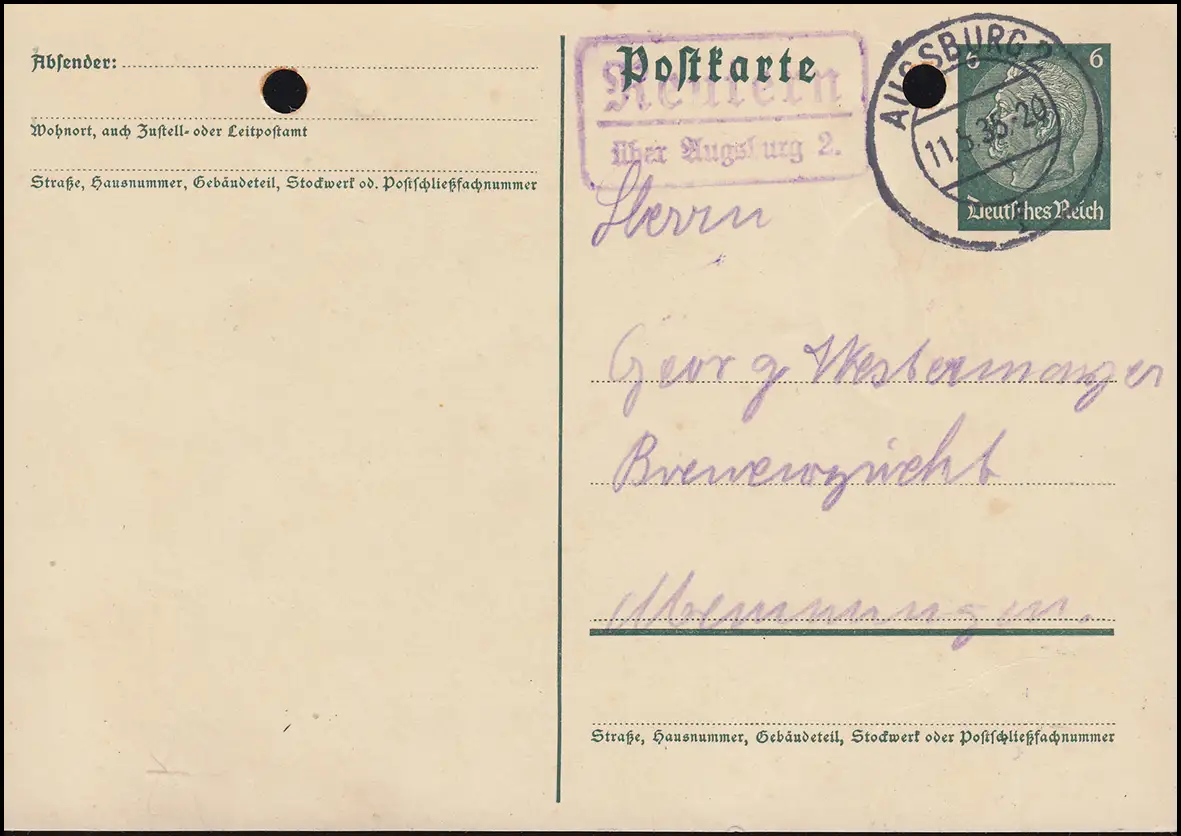 Absender:
Wohnort, auch Zustell- oder Leitpostamt
Straße, Hausnummer, Gebäudeteil, Stockwerk od. Postschließfachnummer
Postkarte
Reutern
über Augsburg 2.
AUGSBURG 2
11.5.36.-20
6
6
Deutsches Reich
Herrn
Georg Westermayer
Memmingen.
Straße, Hausnummer, Gebäudeteil, Stockwerk oder Postschließfachnummer